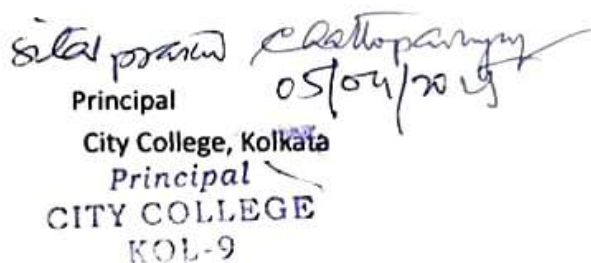 Sital prasad Chattopadhyay
05/04/2019
Principal
City College, Kolkata
Principal
CITY COLLEGE
KOL-9